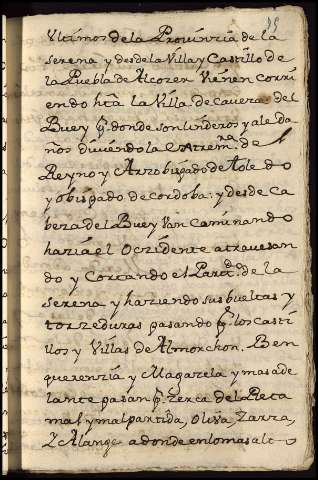 Ultimos de la Provinzia de la
serena y desde la Villa y Castillo de
la Puebla de Alcozer Vienen corri
endo hta la Villa de Cavera del
Buey q donde son linderos y aleda
ños diviendo la extrema de
Reyno y Arzobispado de Toledo
y obispado de cordoba: y desde Ca
bera del Buey Van Caminando
hazia el Oczidente atravesan
do y Cortando el Partdo de la
serena y haziendo sus bueltas y
torzeduras pasando q los casti
llos y Villas de Almorchon. Ben
querenzia y Magazela y mas ade
lante pasan q Zerca de la Reta
mal y malpartida, Oliva, Zarza,
Y Alange a donde en lo mas alt